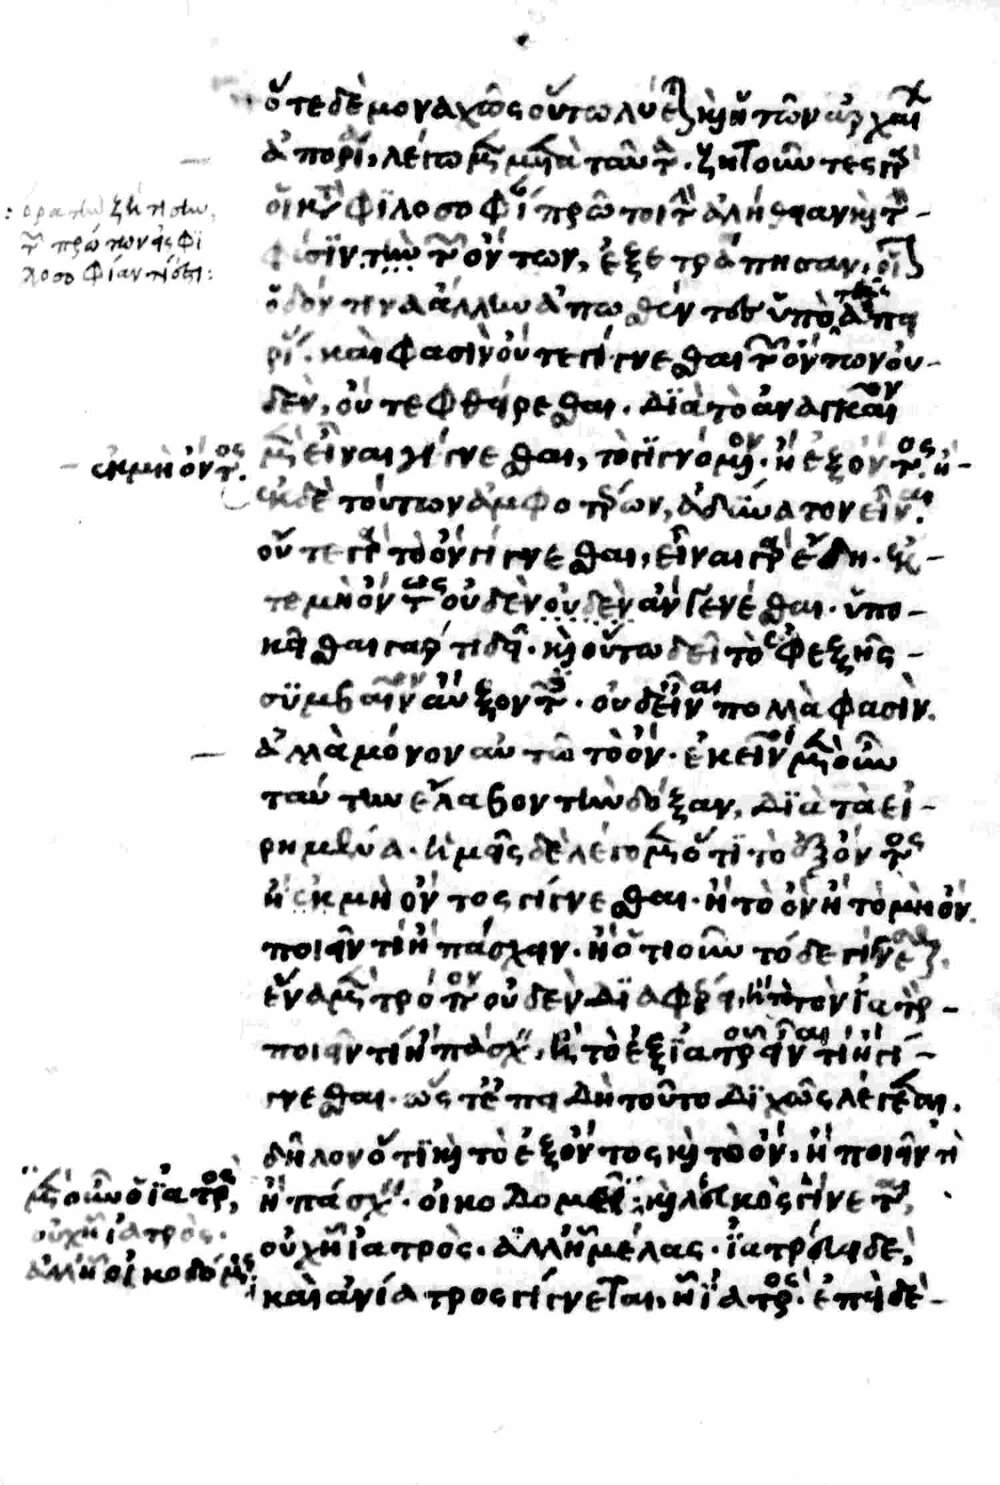 ὅτε δὲ μοναχῶς οὕτω λύεται καὶ ἡ τῶν ἀρχαίων
ἀπορία, λέγωμεν μετὰ ταῦτα. ζητοῦντες γὰρ
οἱ κατὰ φιλοσοφίαν πρῶτοι τὴν ἀλήθειαν καὶ τὴν
φύσιν τὴν τῶν ὄντων, ἐξετράπησαν, οἷον
ὁδόν τινα ἄλλην ἀπωσθέντες ὑπὸ τῆς ἀπει
ρίας. καὶ φασὶν οὔτε γίγνεσθαι τῶν ὄντων οὐ-
δὲν, οὔτε φθείρεσθαι. διὰ τὸ ἀναγκαῖον
μὲν εἶναι γίγνεσθαι, τὸ γιγνόμενον. ἢ ἐξ ὄντος. ἢ-
ἐκ μὴ ὄντος.
ἐκ δὲ τούτων ἀμφοτέρων, ἀδύνατον εἶναι.
οὔτε γὰρ τὸ ὂν γίγνεσθαι, εἶναι γὰρ ἤδη. ἔκ-
τε μὴ ὄντος οὐδὲν οὐδὲν ἂν γενέσθαι. ὑπο-
κεῖσθαι γάρ τι δεῖ. καὶ οὕτω δεῖ τὸ ἐφεξῆς-
συμβαῖνον αὔξοντες. οὐδ' εἶναι πολλὰ φασὶν.
ἀλλὰ μόνον αὐτὸ τὸ ὄν. ἐκεῖνοι μὲν οὖν
ταύτην ἔλαβον τὴν δόξαν, διὰ τὰ εἰ-
ρημένα. ἡμεῖς δὲ λέγομεν ὅτι τὸ ἐξ ὄντος
ἢ ἐκ μὴ ὄντος γίγνεσθαι. ἢ τὸ ὂν ἢ τὸ μὴ ὄν.
ποιεῖν τι ἢ πάσχειν. ἢ ὁτιοῦν τόδε γίγνεσθαι.
ἕνα μὲν τρόπον οὐδὲν διαφέρει, ἢ τὸ τὸν ἰατρ-
ποιεῖν τι ἢ πάσχειν, ἢ τὸ ἐξ ἰατροῦ εἶναί τι ἢ γί-
γνεσθαι. ὥστ' ἐπειδὴ τοῦτο διχῶς λέγεται.
δῆλον ὅτι καὶ τὸ ἐξ ὄντος καὶ τὸ ὄν, ἢ ποιεῖν τι
ἢ πάσχειν. οἰκοδομεῖ μὲν οὖν ὁ ἰατρός,
οὐχ ἧ ἰατρὸς.
ἀλλ' ἧ οἰκοδόμος:
καὶ λευκὸς γίνεται,
οὐχ ἧ ἰατρὸς. ἀλλ' ἧ μέλας. ἰατρεύει δὲ,
καὶ ἀνίατρος γίγνεται, ἧ ἰατρός. ἐπεὶ δὲ-